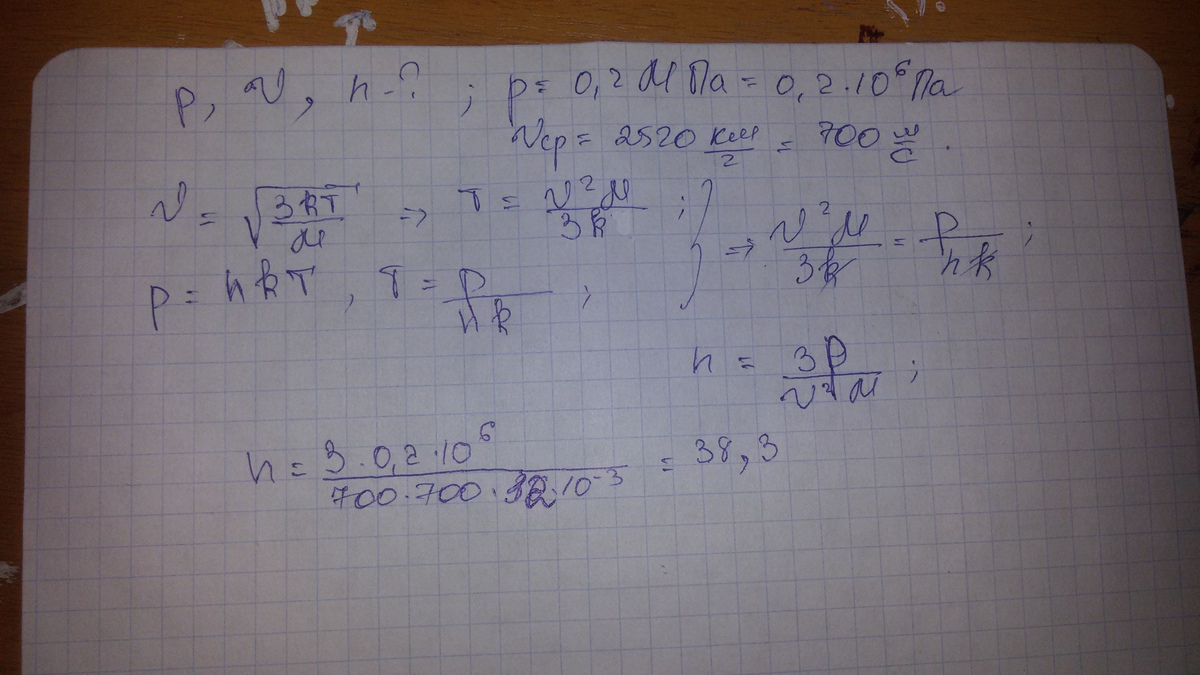 p, v, n - ? ; p = 0,2 М Па = 0,2 · 10⁶ Па
vср = 2520 км/г = 700 м/с .
v = √(3kT/M) ⇒ T = v²M/3k ; } ⇒ v²M/3k = p/nk ;
p = nkT , T = p/nk ;
n = 3p/v²M ;
n = 3 · 0,2 · 10⁶ / 700 · 700 · 32 · 10⁻³ = 38,3